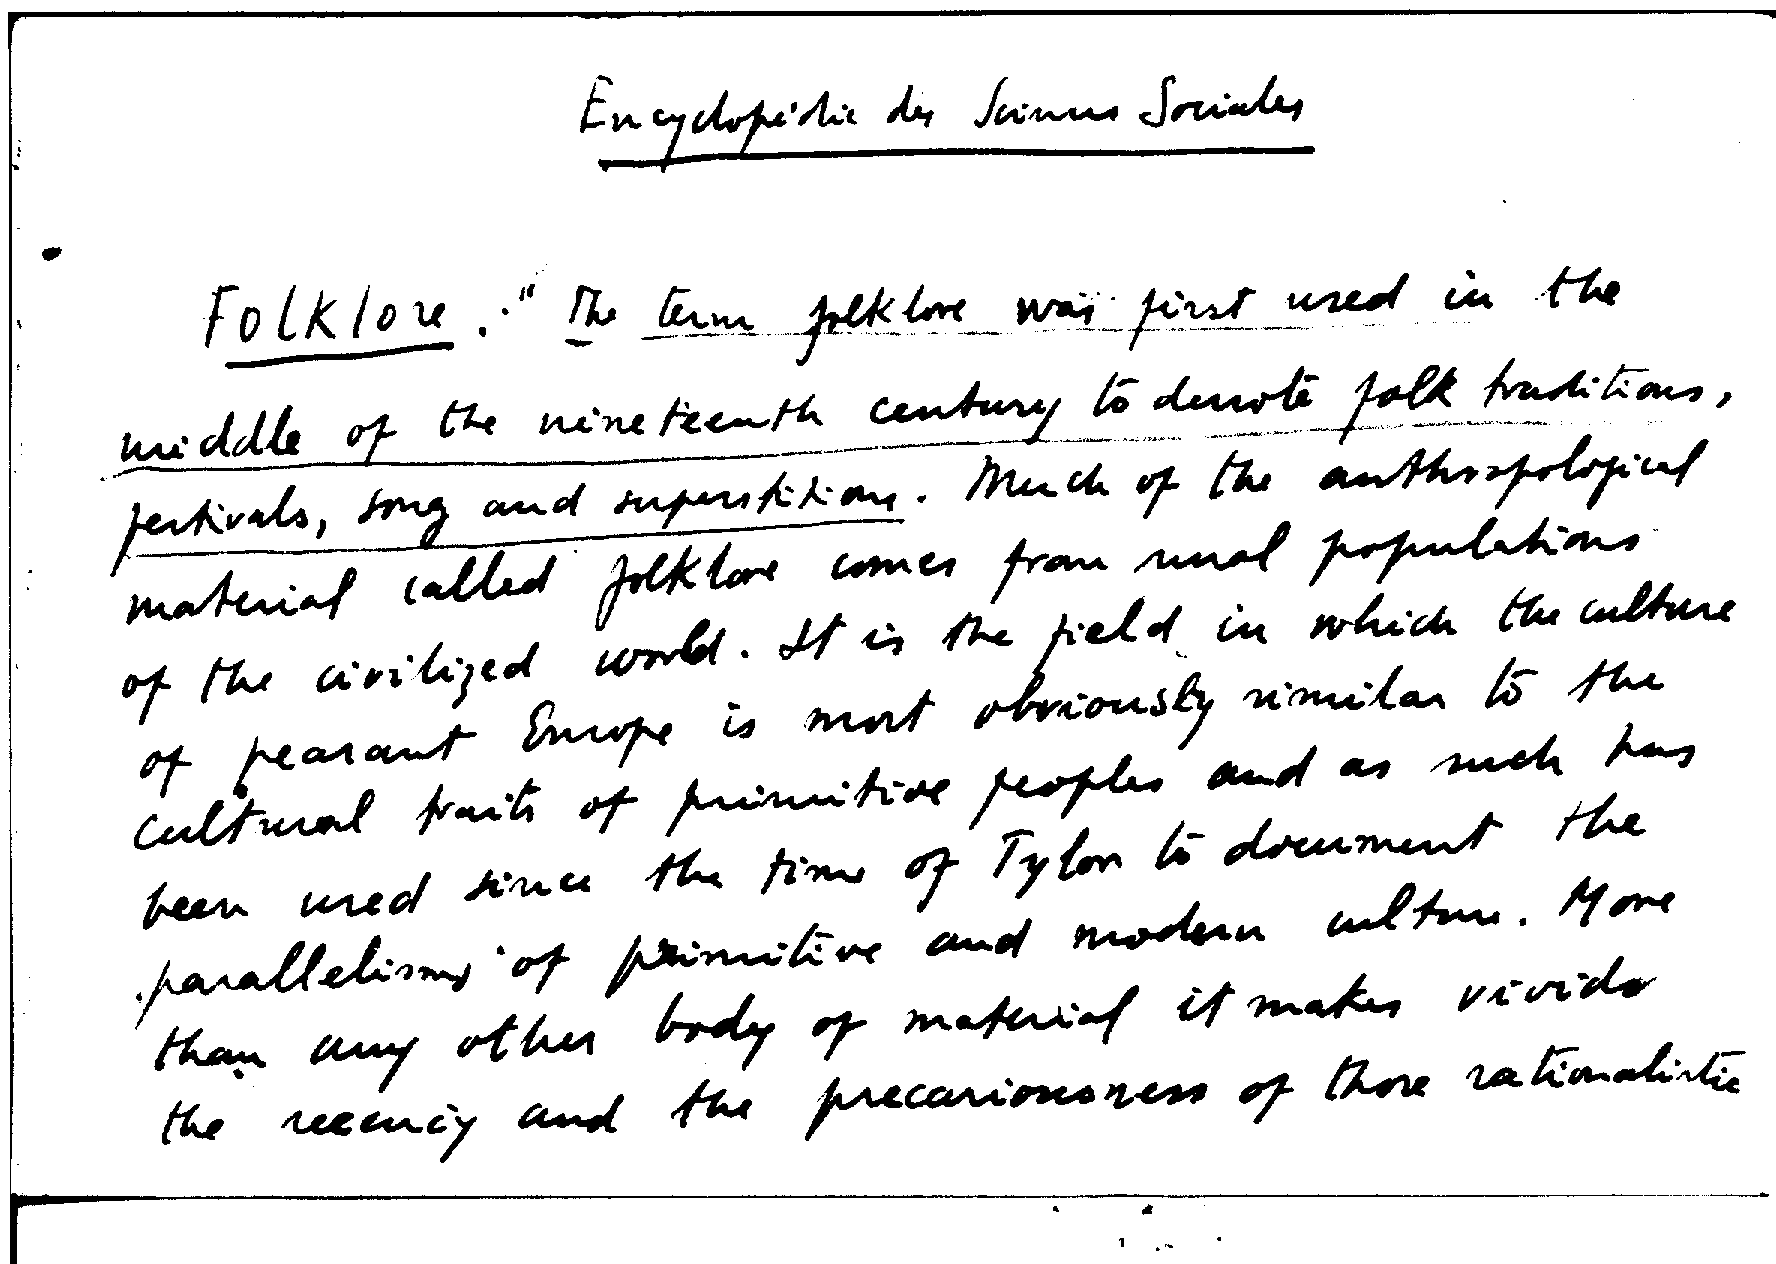 Encyclopédie des Sciences Sociales
Folklore : " The term folklore was first used in the
middle of the nineteenth century to denote folk traditions,
festivals, song and superstitions. Much of the anthropological
material called folklore comes from rural populations
of the civilized world. It is the field in which the culture
of peasant Europe is most obviously similar to the
cultural traits of primitive peoples and as such has
been used since the time of Tylor to document the
parallelisms of primitive and modern culture. More
than any other body of material it makes vivids
the recency and the precariousness of those rationalistic